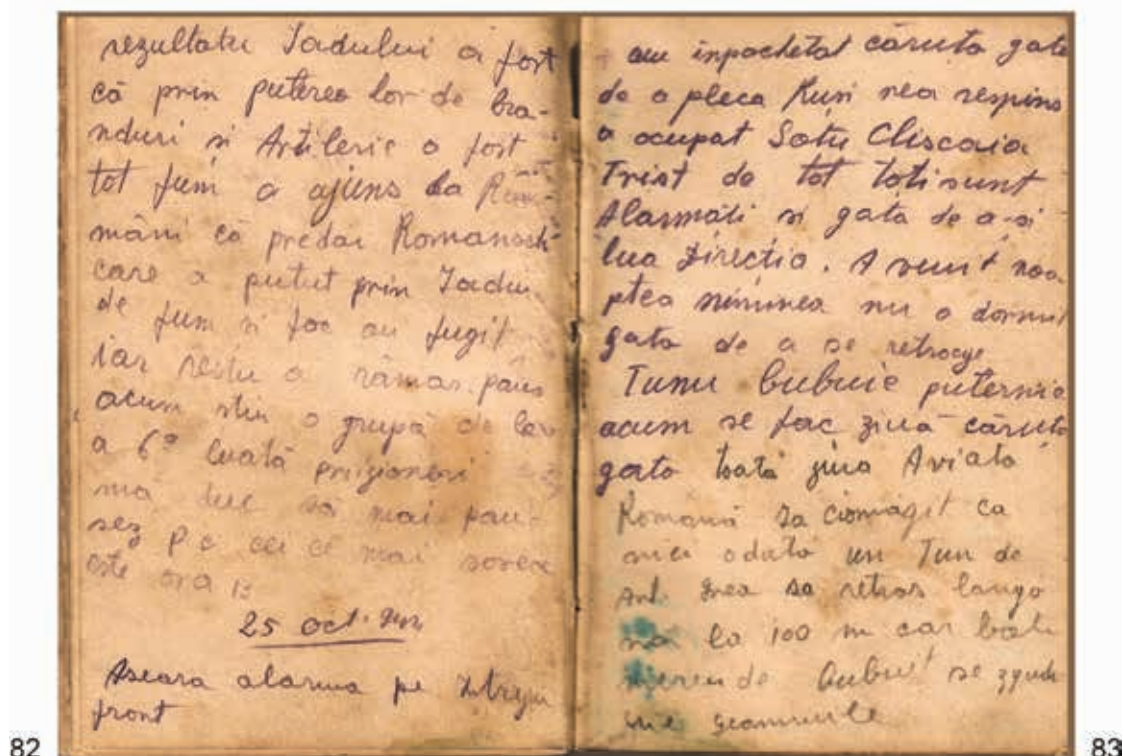 rezultatu Iadului a fost
că prin puterea lor de bra-
nduri si Artilerie a fost
tot fum a ajuns la
mâni că predai
care a putut prin Iadu
de fum si foc au fugit
iar restu a rămas. păus
acum stiu o grupă de la
a 6ª luată prizioneri
mă duc să mai pau-
sez P.c cei ce mai
este ora 13
25 oct.
Aseara alarma pe
front
82
au inpachetat căruta gata
de a pleca Rusi nea respins
a ocupat Satu Cliscaia
Trist de tot toti sunt
Alarmati si gata de a-si
lua Directia. A venit noa
ptea nimunea nu a dormit
gata de a se retrage
Tunu bubuie puternic
acum se fac ziuă căruta
gata toată ziua Aviata
Română sa ciomăgit ca
nici odata un Tun de
Art. grea sa retras langa
noi la 100 m car bate
de bubuit se zgudu
ue geamurile
83